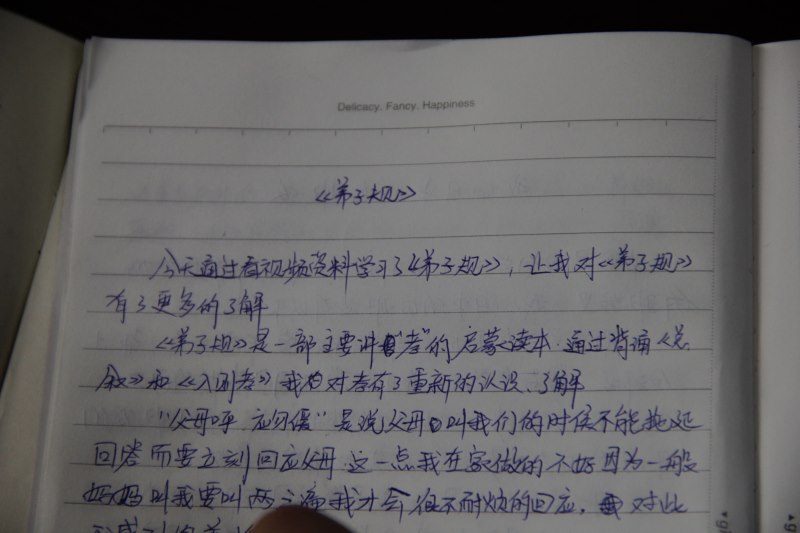 Delicacy. Fancy. Happiness
《弟子规》
今天通过看视频资料学习了《弟子规》，让我对《弟子规》
有了更多的了解
《弟子规》是一部主要讲"孝"的启蒙读本.通过背诵《总
叙》和《入则孝》我对孝有了重新的认识、了解
"父母呼 应勿缓"是说父母叫我们的时候不能拖延
回答而要立刻回应父母.这一点我在家做的不好因为一般
妈妈叫我要叫两三遍我才会很不耐烦的回应，对此